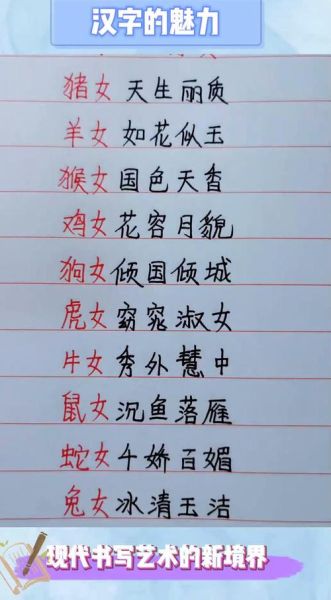 汉字的魅力
猪女 天生丽质
羊女 如花似玉
猴女 国色天香
鸡女 花容月貌
狗女 倾国倾城
虎女 窈窕淑女
牛女 秀外慧中
鼠女 沉鱼落雁
蛇女 千娇百媚
兔女 冰清玉洁
现代书写艺术的新境界